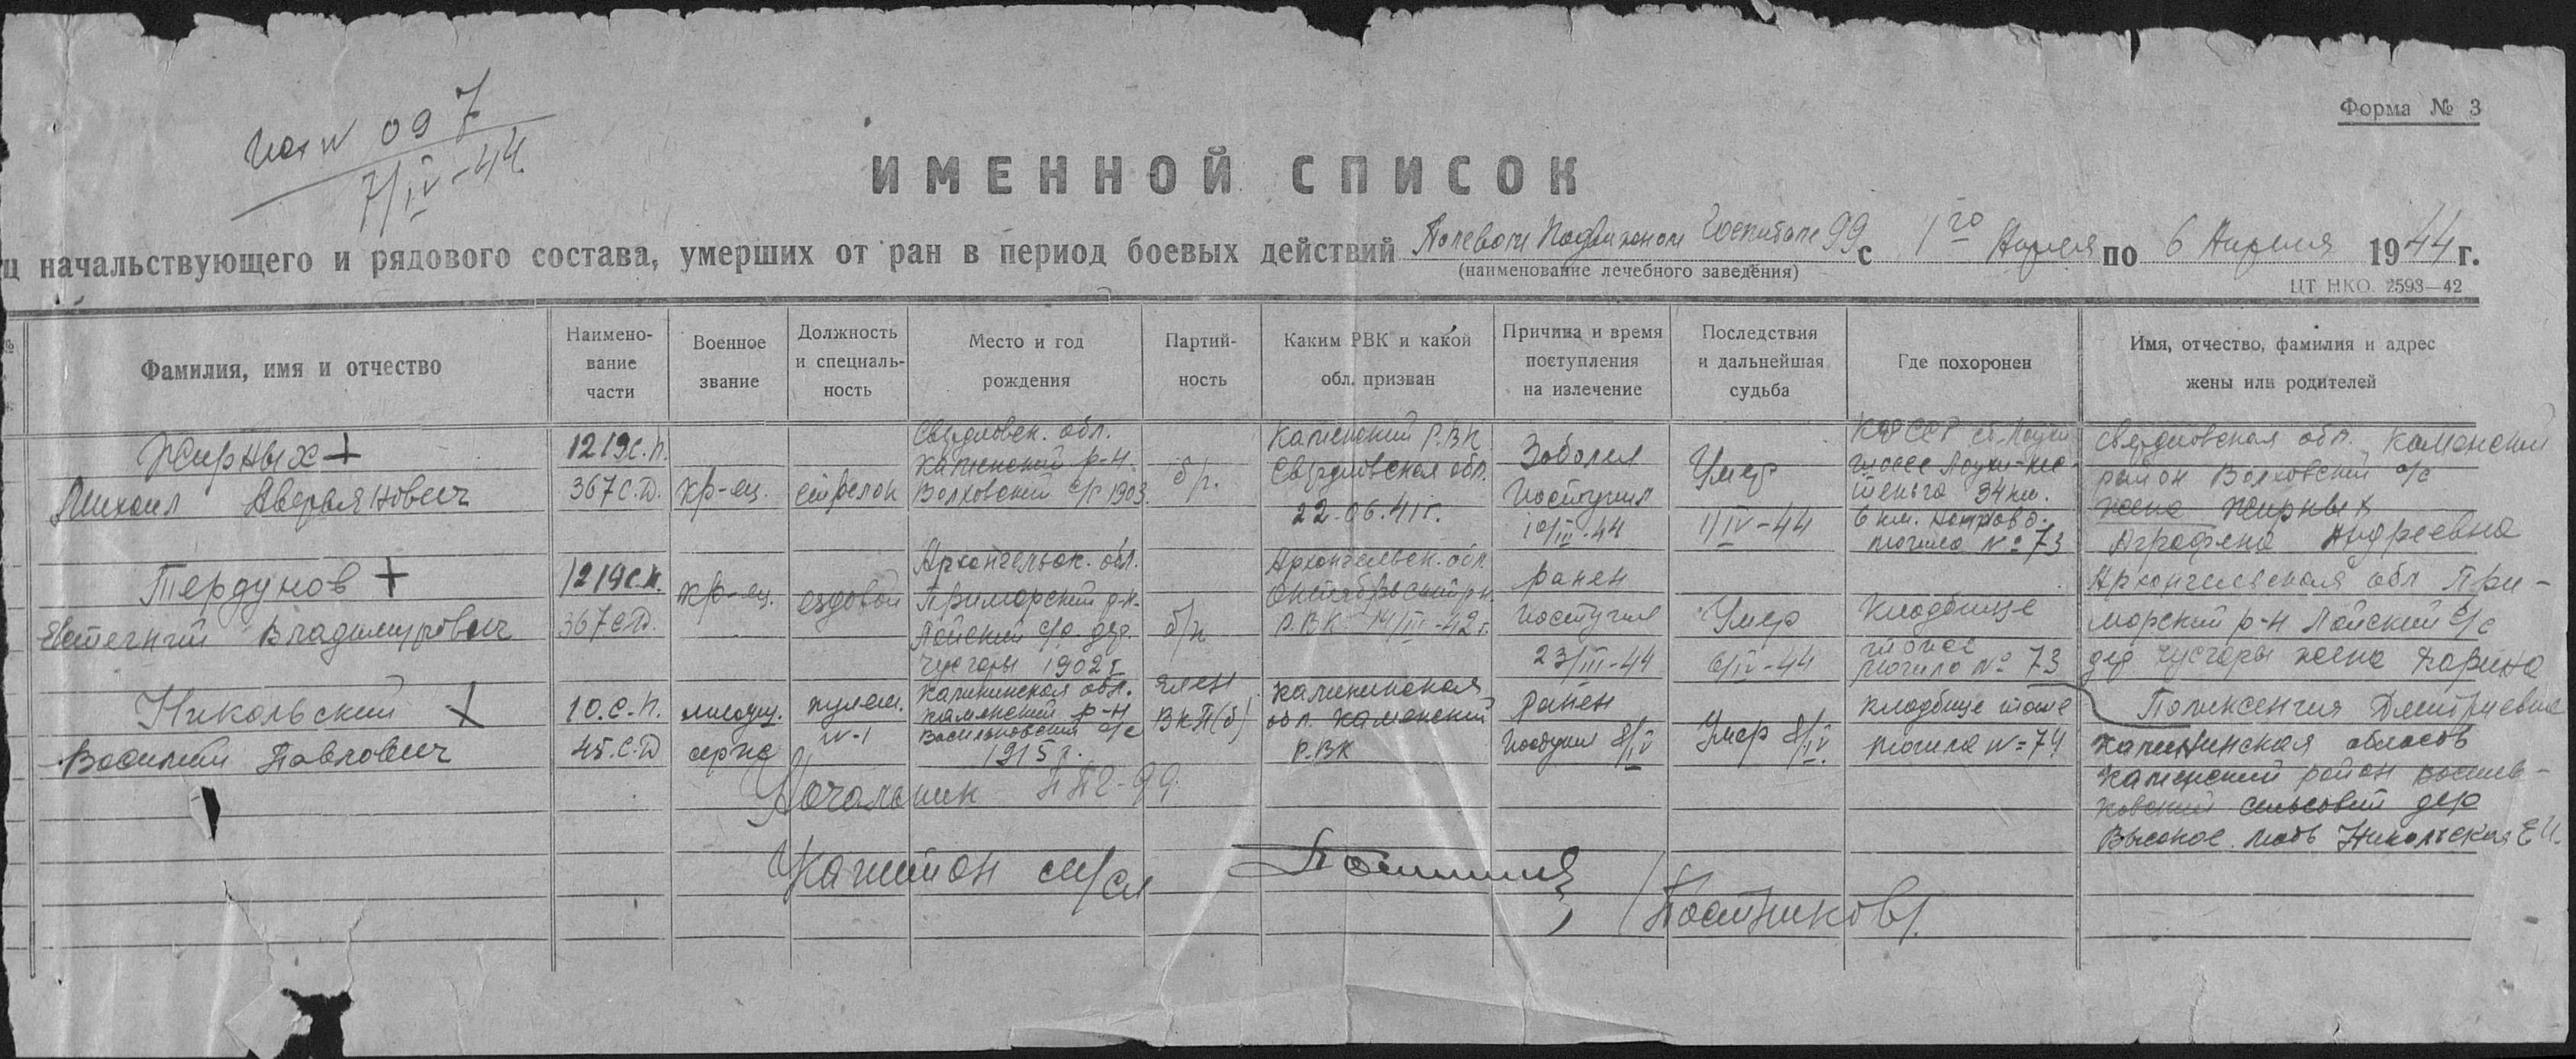 Исх № 097
7/IV-44
Форма № 3
ИМЕННОЙ СПИСОК
ц начальствующего и рядового состава, умерших от ран в период боевых действий Полевом Подвижном Госпитале 99 с 1го Апреля по 6 Апреля 1944 г.
(наименование лечебного заведения)
ЦТ НКО. 2593—42
№
Фамилия, имя и отчество
Наимено-
вание
части
Военное
звание
Должность
и специаль-
ность
Место и год
рождения
Партий-
ность
Каким РВК и какой
обл. призван
Причина и время
поступления
на излечение
Последствия
и дальнейшая
судьба
Где похоронен
Имя, отчество, фамилия и адрес
жены или родителей
Жирных +
Михаил Аверьянович
1219 с.п.
367 с.д.
кр-ец.
стрелок
Свердловск. обл.
Каменский р-н.
Волховский с/с 1903.
Каменский Р.ВК
Свердловская обл.
22-06.41г.
Заболел
Поступил
10/III-44
Умер
1/IV-44
КФССР ст. Лоухи
шоссе Лоухи-Кес-
теньга 34 км.
6 км.
могила № 73
Свердловская обл. Каменский
район Волховский с/с
жена Жирных
Аграфена Андреевна
Тердунов +
Евстегний Владимирович
1219 с.п.
367 с.д.
кр-ец.
ездовой
Архангельск. обл.
Приморский р-н.
Лойский с/с. дер.
Чусгоры 1902г
б/п
Архангельск. обл.
Октябрьский рн.
Р.ВК 14/III-42г.
ранен
поступил
23/III-44
Умер
6/IV-44
Кладбище
могила № 73
Архангельская обл При-
морский р-н Лойский с/с
дер Чусгоры жена
Поликсения Дмитриевна
Никольский +
Василий Павлович
10.С.П.
45.С.Д
младш.
серж
пулем.
№-1
Калининская обл.
Каменский р-н
1915г.
член
ВКП(б)
Калининская
обл. Каменский
Р.ВК
ранен
Поступил 8/IV
Умер 8/IV.
Кладбище тоже
могила №=74
Калининская область
Каменский район
сельсовет дер
Высокое. мать Никольская Е И.
Начальник ППГ-99
Капитан м/сл
/Постников/.